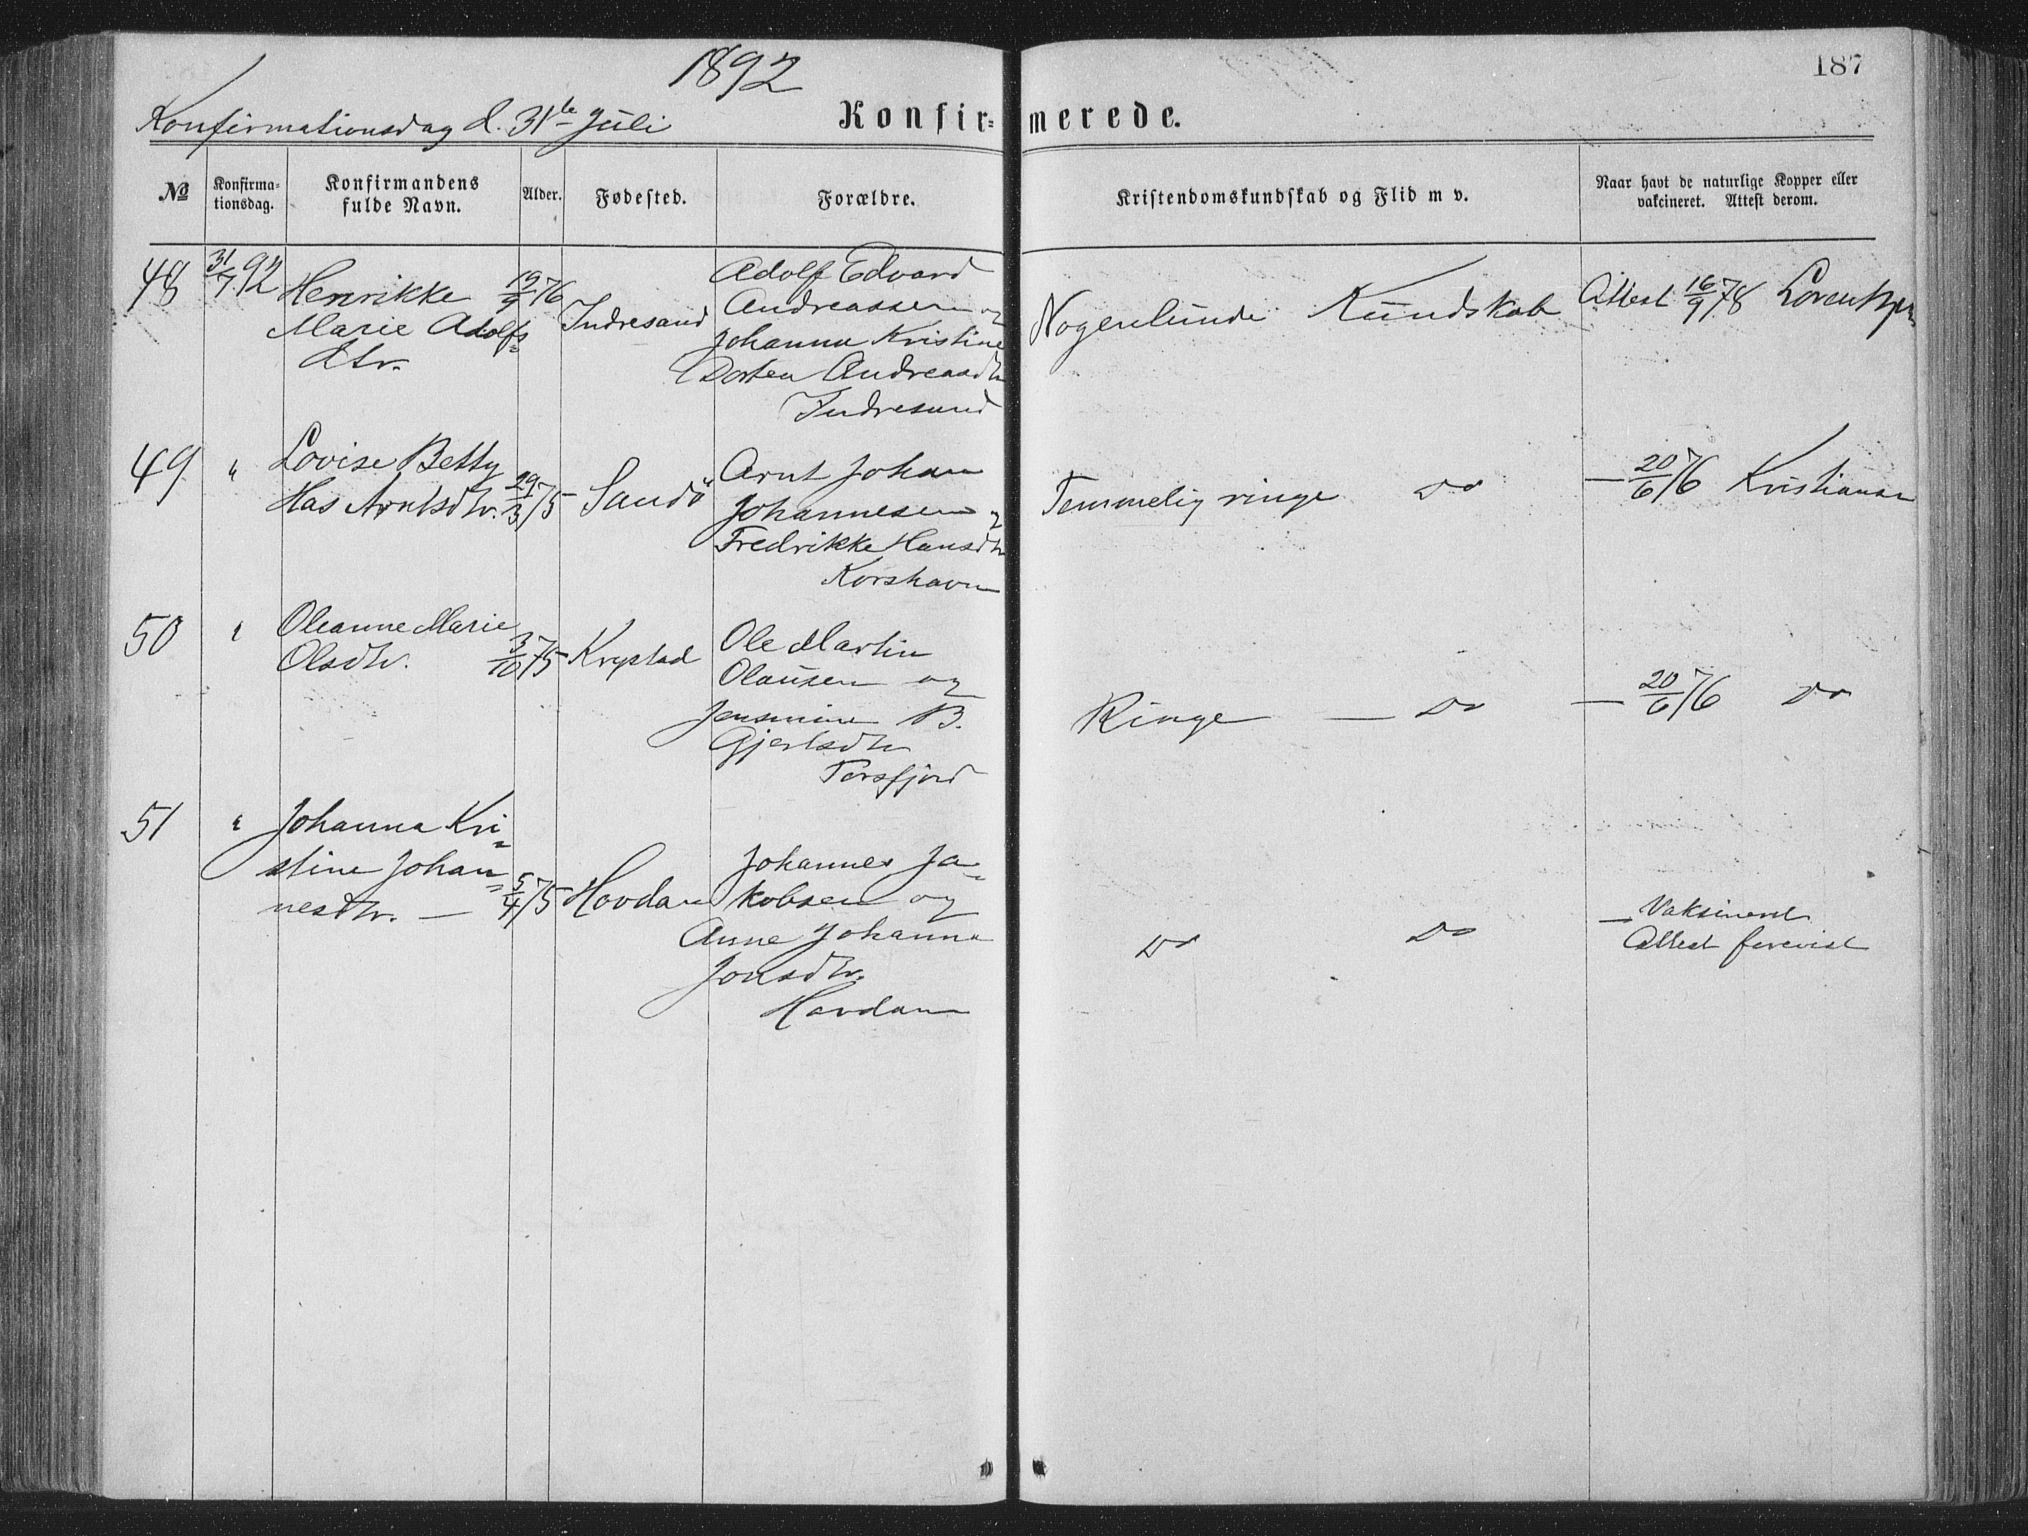 1892
187
Konfirmationsdag d. 31te Juli
Konfir=merede.
No
Konfirma=
tionsdag.
Konfirmandens
fulde Navn.
Alder.
Fødested.
Forældre.
Kristendomskundskab og Flid m v.
Naar havt de naturlige Kopper eller
vakcineret. Attest derom.
48
31/7 92
Henrikke
Marie Adolfs=
dtr.
19/9 76
Indresand
Adolf Edvard
Andreassen og
Johanna Kristine
Dortea Andreasdtr
Indresand
Nogenlunde Kundskab
Attest 16/9 78
49
"
Lovise Betty
Has Arntsdtr.
29/3 75
Sandö
Arnt Johan
Johannesen og
Fredrikke Hansdtr
Korshavn
Temmelig ringe Do
— 20/6 76 Kristiansen
50
"
Oleanne Marie
Olsdtr.
3/10 75
Krystad
Ole Martin
Olausen og
Jensmine B.
Gjertsdtr
Torsfjord
Ringe — Do
— 20/6 76 Do
51
"
Johanna Kri=
stine Johan=
nesdtr. —
5/4 75
Hovdan
Johannes Ja=
kobsen og
Anne Johanna
Jonsdtr.
Hovdan
Do Do
— Vaksineret
Attest forevist